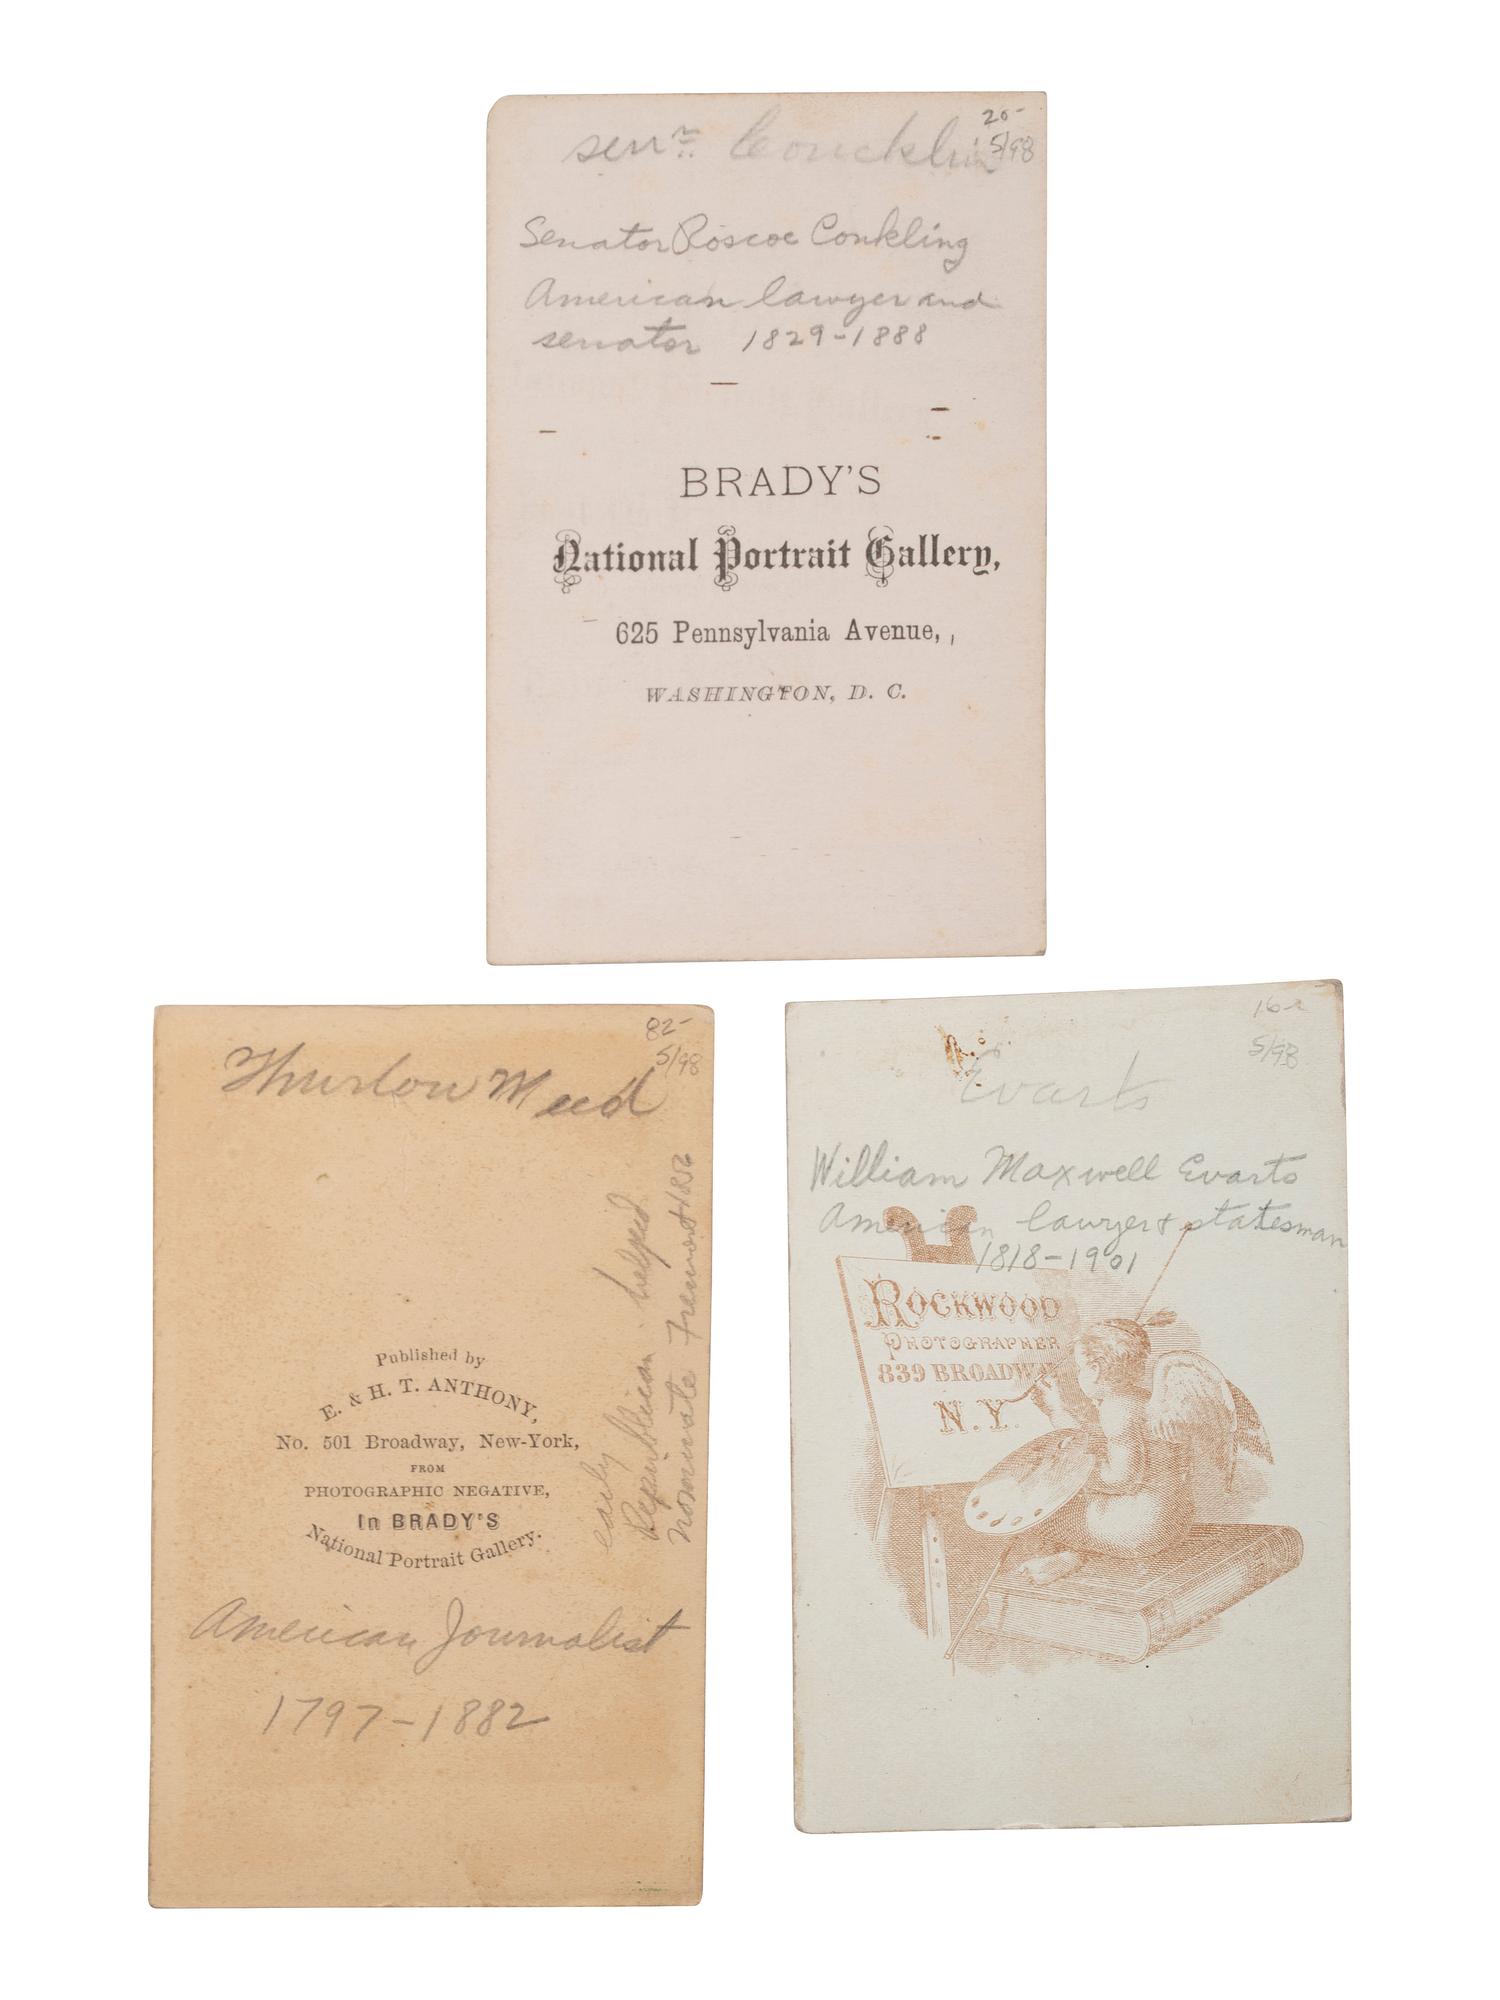 20-
5/98
senr. Concklin
Senator Roscoe Conkling
American lawyer and
senator 1829-1888
BRADY'S
National Portrait Gallery,
625 Pennsylvania Avenue,
WASHINGTON, D. C.
82-
5/98
Thurlow Weed
early Republican · helped
nominate Fremont 1856
Published by
E. & H. T. ANTHONY,
No. 501 Broadway, New-York,
FROM
PHOTOGRAPHIC NEGATIVE,
In BRADY'S
National Portrait Gallery.
American Journalist
1797-1882
16-
5/98
Evarts
William Maxwell Evarts
American lawyer & statesman
1818-1901
ROCKWOOD
PHOTOGRAPHER
839 BROADWAY
N.Y.